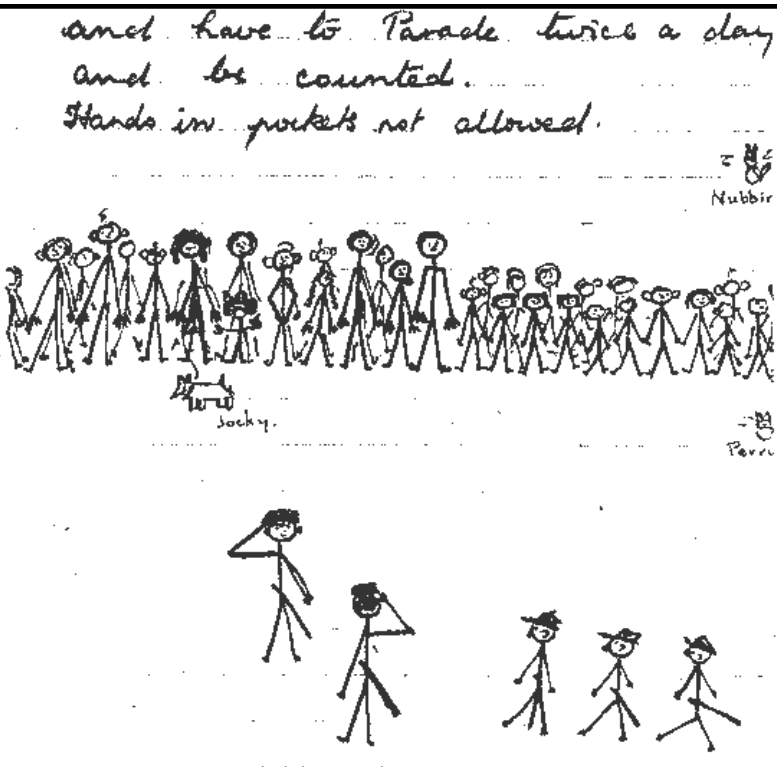 and have to Parade twice a day
and be counted.
Hands in pockets not allowed.
Nubbin
Jocky.